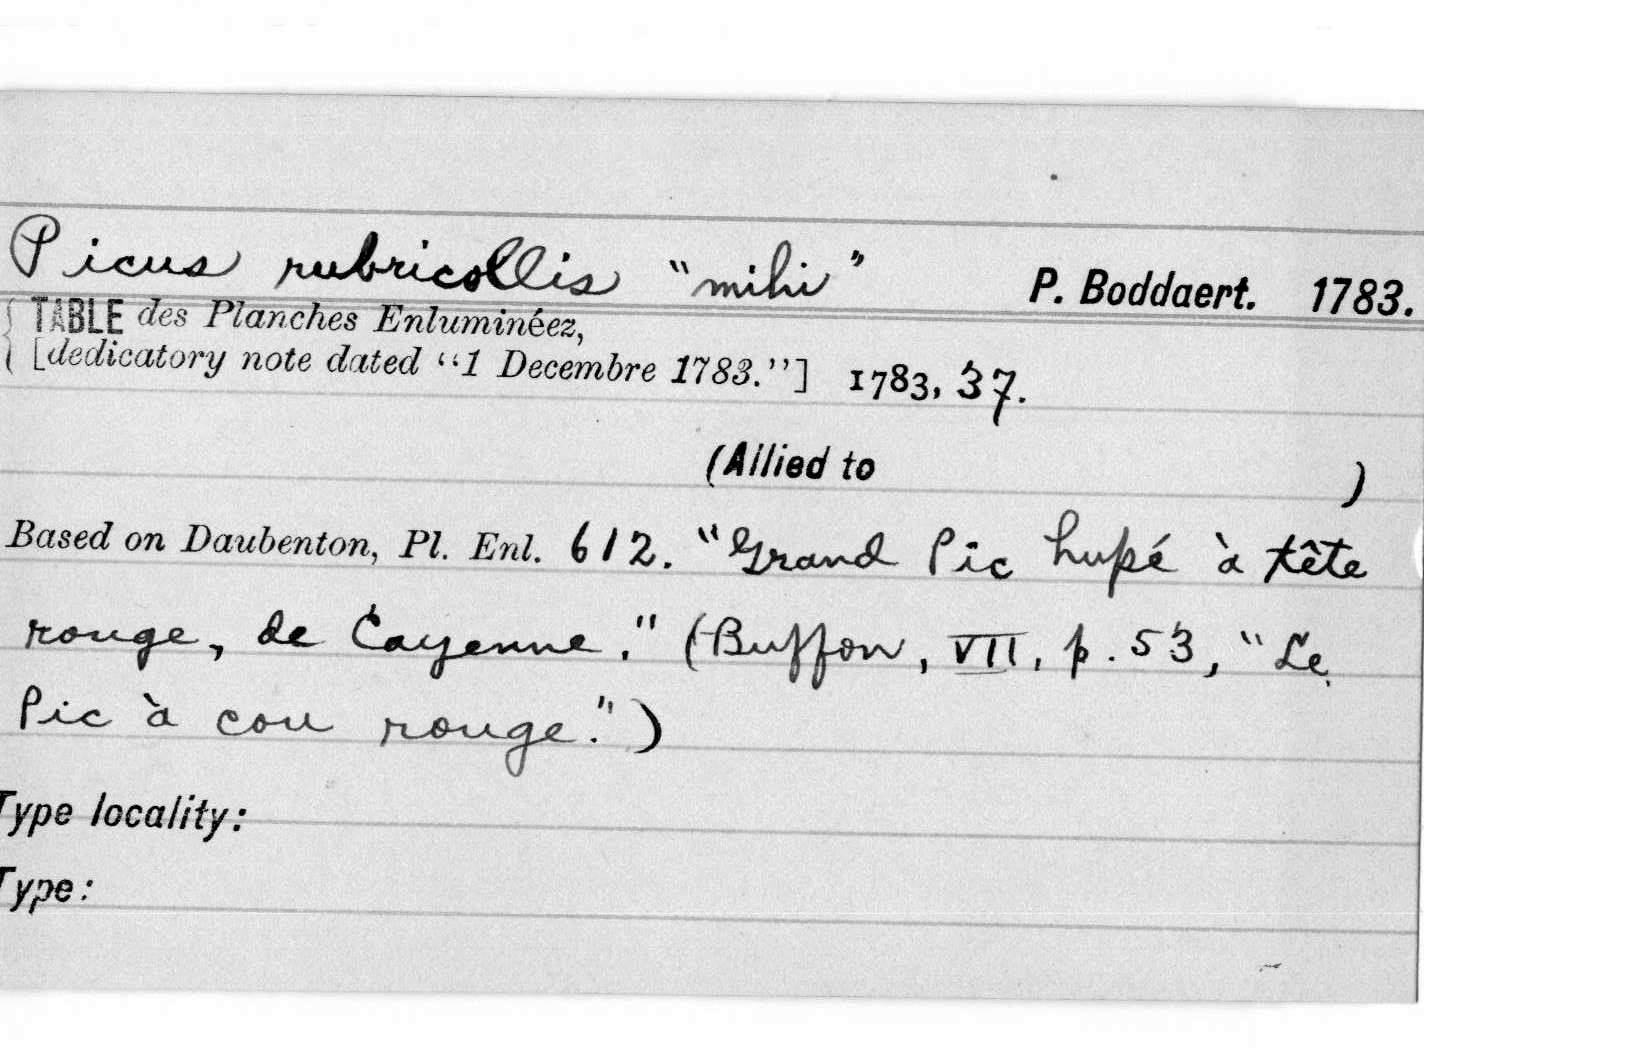 Picus rubricollis "mihi" P. Boddaert. 1783.
TABLE des Planches Enluminéez,
[dedicatory note dated "1 Decembre 1783."] 1783, 37.
(Allied to )
Based on Daubenton, Pl. Enl. 612. "Grand Pic hupé à tête
rouge, de Cayenne." (Buffon, VII, p. 53, "Le
Pic à cou rouge.")
Type locality:
Type: